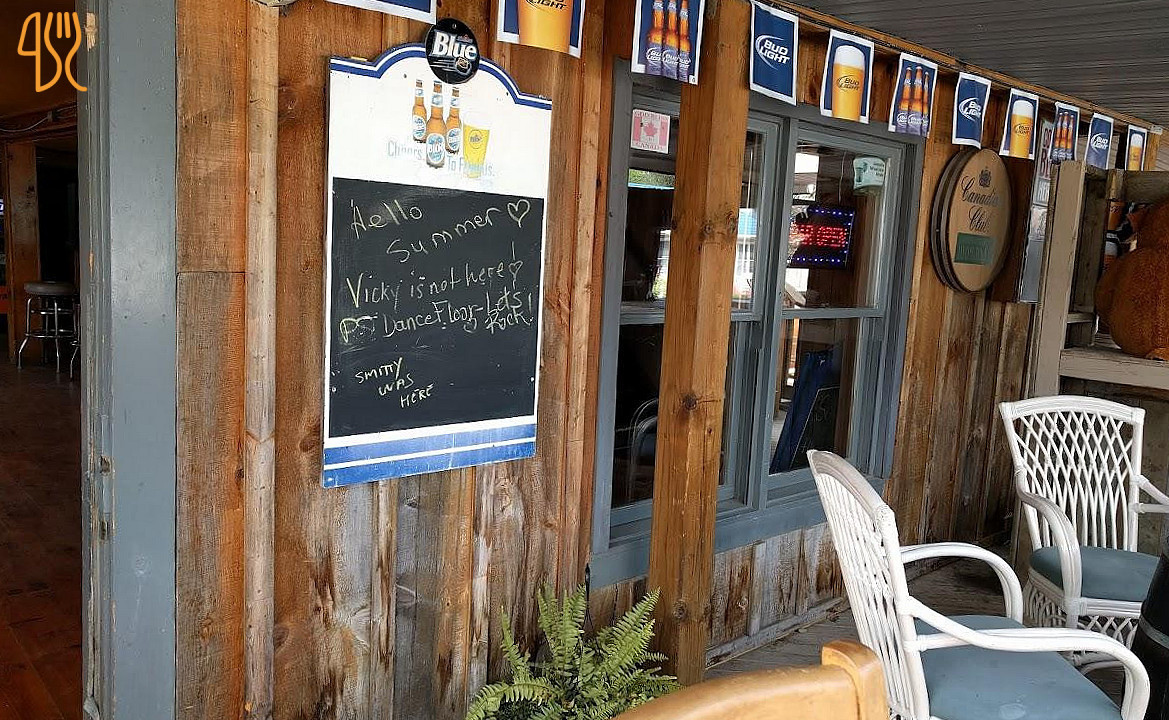 Blue
Cheers.
To Friends.
Hello
Summer
Vicky is not here!
PS Dance Floor - Lets
Rock!
SMITTY
WAS
HERE
BUD LIGHT
BUD
LIGHT
CANADA
OPEN
Canadian
Club
BUD LIGHT